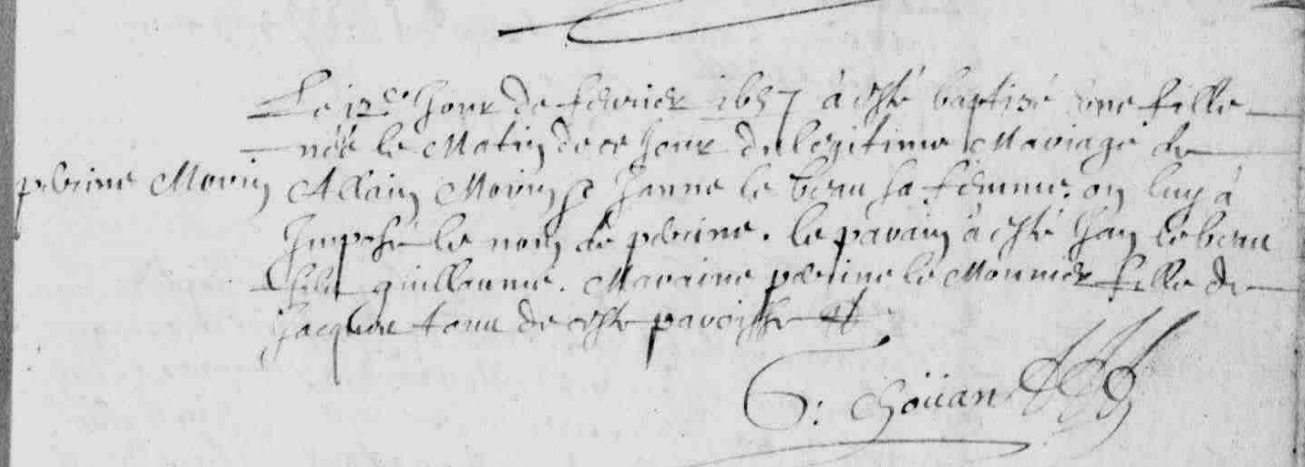 Le 12e Jour de febvrier 1657 à esté baptizé une fille
née le Matin de ce Jour du legitime Mariage de
perine Morin
Allain Morin & Janne le beau sa femme. on luy à
Imposé le nom de perine. le parain à esté Jan le beau
fils guillaume. Maraine perine le Mounier fille de
Jacques tous de ceste paroisse
G: Choüan